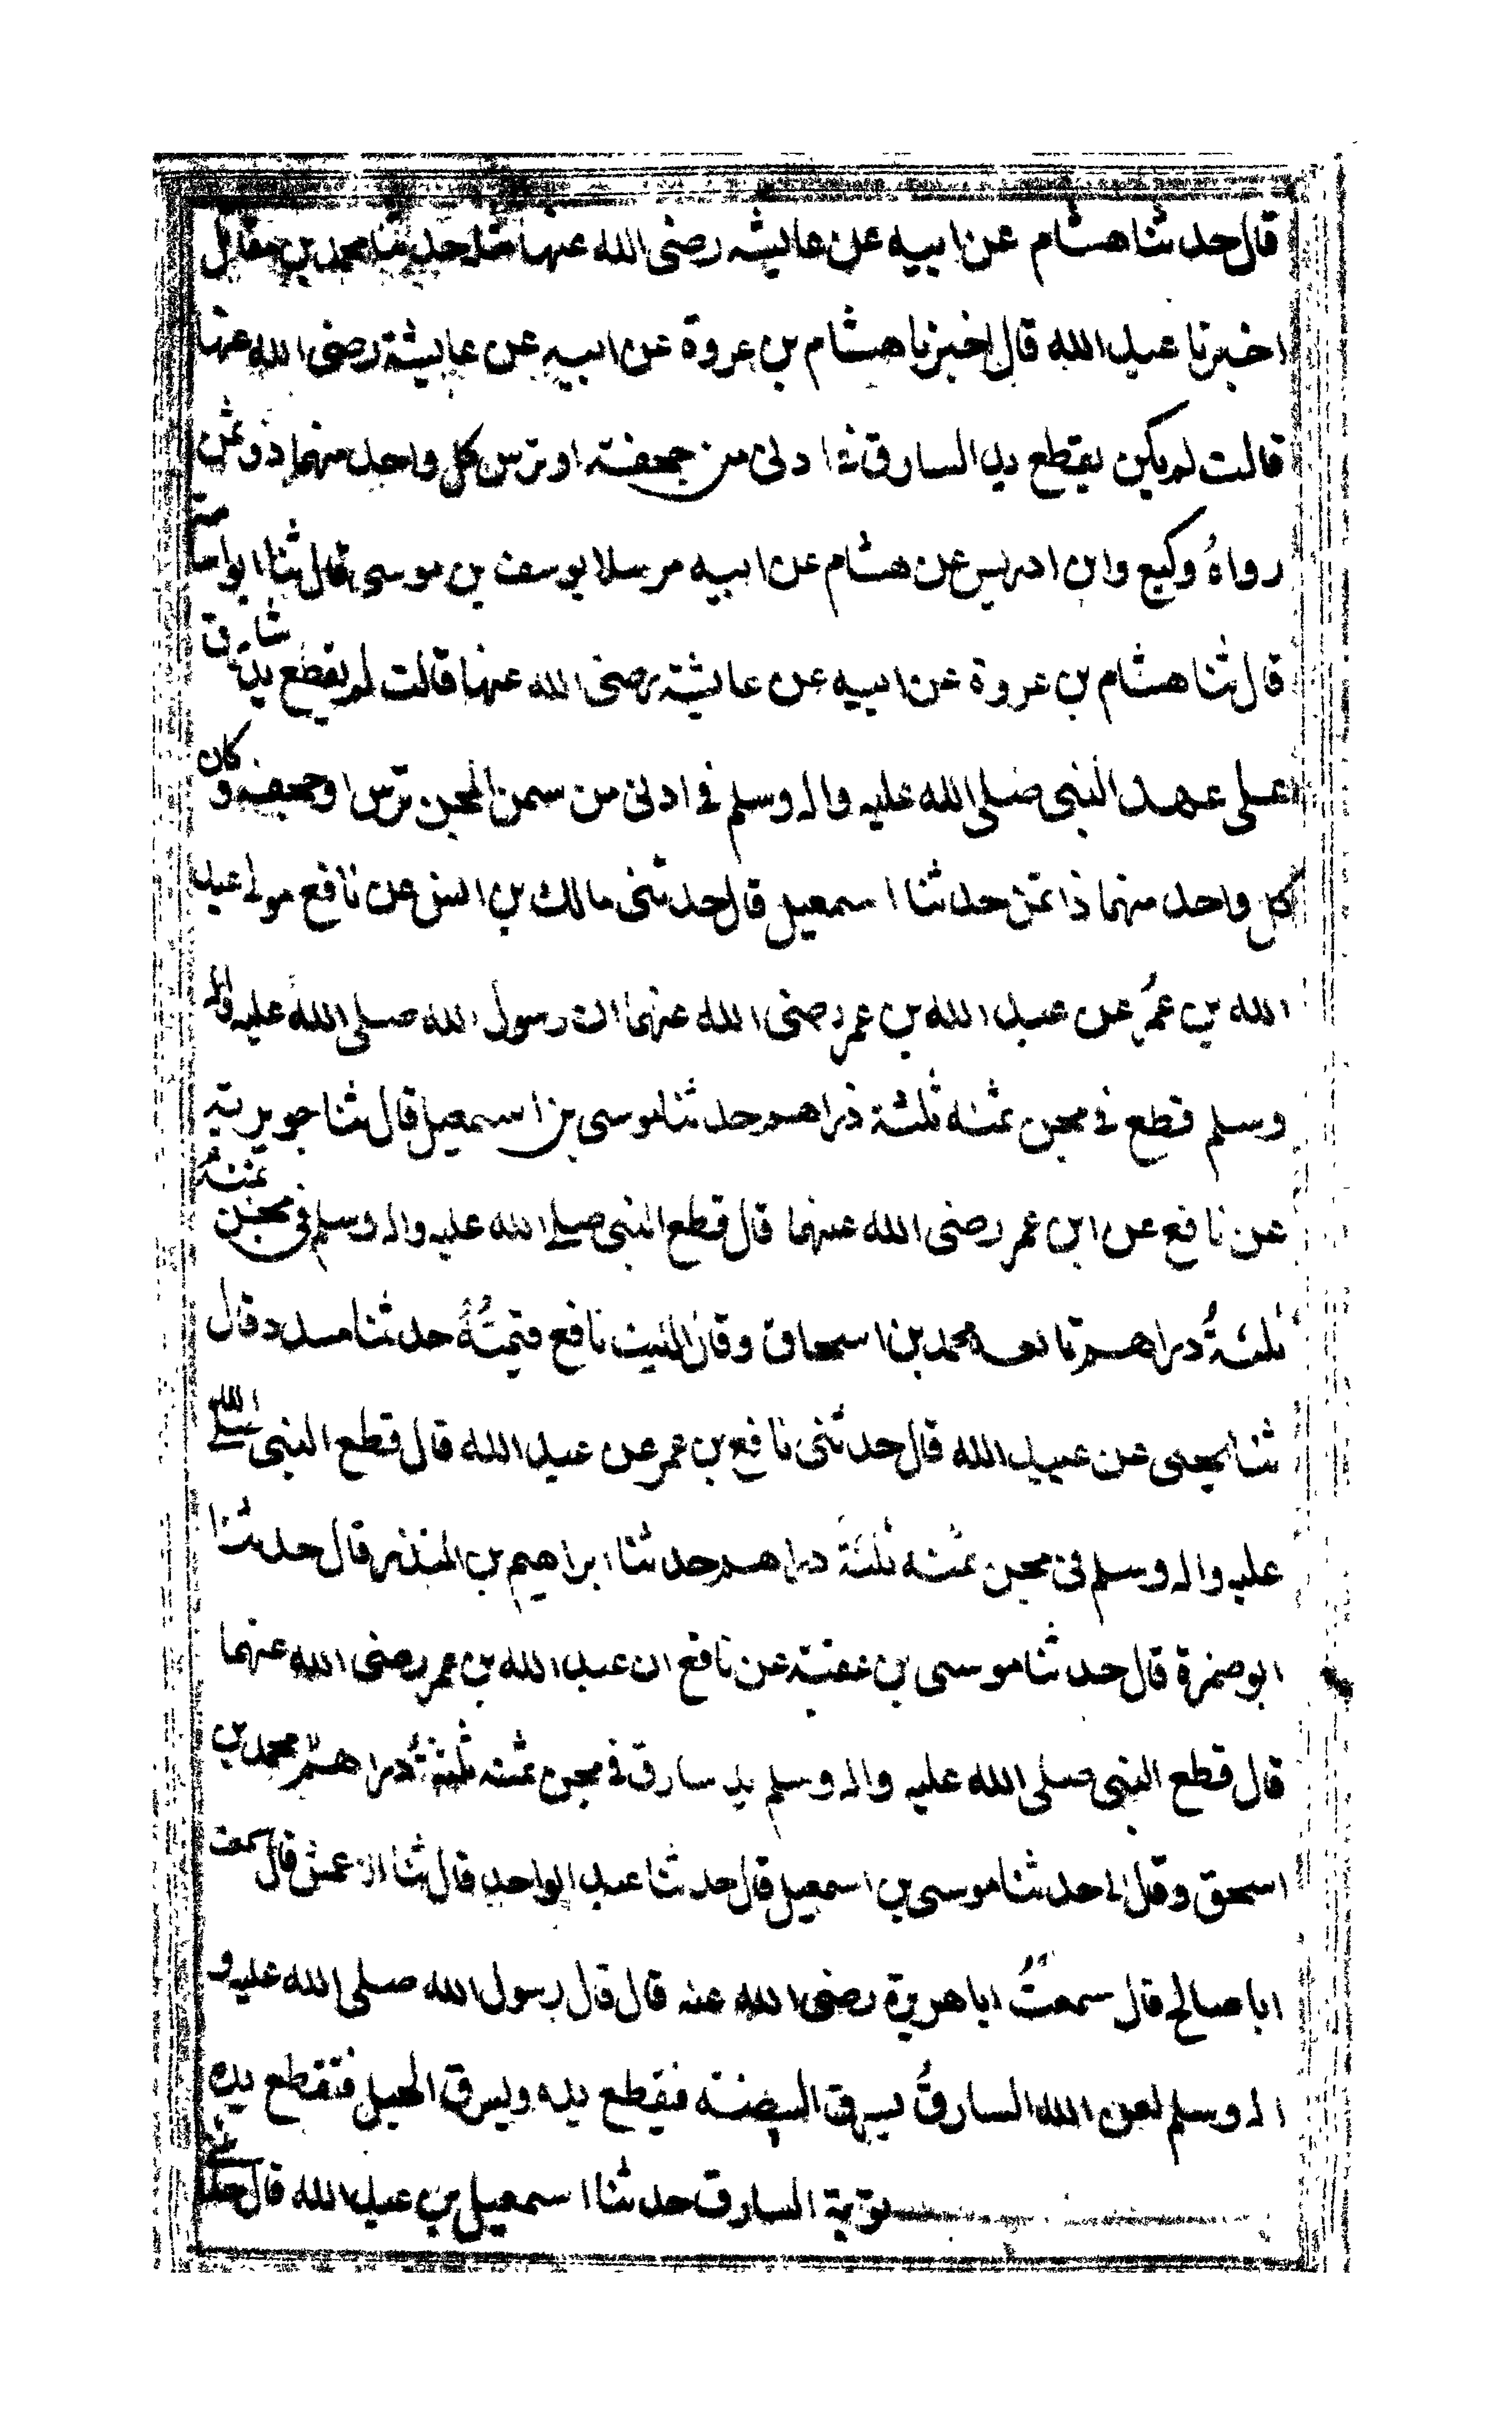 قال حدثنا هشام عن ابيه عن عايشه رضى الله عنها حدثنا محمد بن مقاتل
اخبرنا عبد الله قال اخبرنا هشام بن عروة عن ابيه عن عايشة رضى الله عنها
قالت لم يكن يقطع يد السارق فى ادنى من جحفة او ترس كل واحد منهما ذو ثمن
رواهُ وكيع وابن ادريس عن هشام عن ابيه مرسلا يوسف بن موسى قال ثنا ابو اسامة
قال ثنا هشام بن عروة عن ابيه عن عايشة رضى الله عنها قالت لم يقطع يد سارق
على عهد النبى صلى الله عليه واله وسلم فى ادنى من ثمن المجن ترس او جحفه وكان
كل واحد منهما ذا ثمن حدثنا اسمعيل قال حدثنى مالك بن انس عن نافع مولى عبد
الله بن عمرُ عن عبد الله بن عمر رضى الله عنهما ان رسول الله صلى الله عليه واله
وسلم قطع فى مجن ثمنه ثلثة دراهم حدثنا موسى بن اسمعيل قال ثنا جويرية
عن نافع عن ابن عمر رضى الله عنهما قال قطع النبى صلى الله عليه واله وسلم فى مجن ثمنهُ
ثلثةُ دراهم تابعه محمد بن اسحاق وقال الليث نافع قيمتُهُ حدثنا مسدد قال
ثنا يحيى عن عبيد الله قال حدثنى نافع بن عمر عن عبد الله قال قطع النبى صلى الله
عليه واله وسلم فى مجن ثمنه ثلثة دراهم حدثنا ابراهيم بن المنذر قال حدثنا
ابو ضمرة قال حدثنا موسى بن عقبة عن نافع ان عبد الله بن عمر رضى الله عنهما
قال قطع النبى صلى الله عليه واله وسلم يد سارق فى مجن ثمنه ثلثةُ دراهم محمد بن
اسحق وقال حدثنا موسى بن اسمعيل قال حدثنا عبد الواحد قال ثنا الاعمش قال سمعت
ابا صالح قال سمعتُ ابا هريرة رضى الله عنه قال قال رسول الله صلى الله عليه و
اله وسلم لعن الله السارقُ يسرق البيضة فيقطع يده ويسرق الحبل فتقطع يده
توبة السارق حدثنا اسمعيل بن عبد الله قال حدثنى